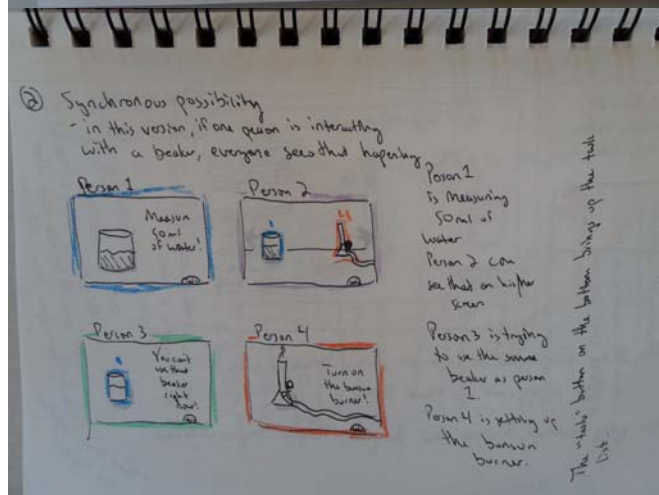 ② Synchronous possibility
- in this version, if one person is interacting
with a beaker, everyone sees that happening
Person 1
Measure
50ml
of water!
Person 2
4
Person 3
You can't
use that
beaker
right
now!
Person 4
Turn on
the bunsun
burner!
Person 1
is measuring
50ml of
water
Person 2 can
see that on his/her
screen
Person 3 is trying
to use the same
beaker as person
1.
Person 4 is setting up
the bunsun
burner.
The "task" button on the bottom brings up the task
list.